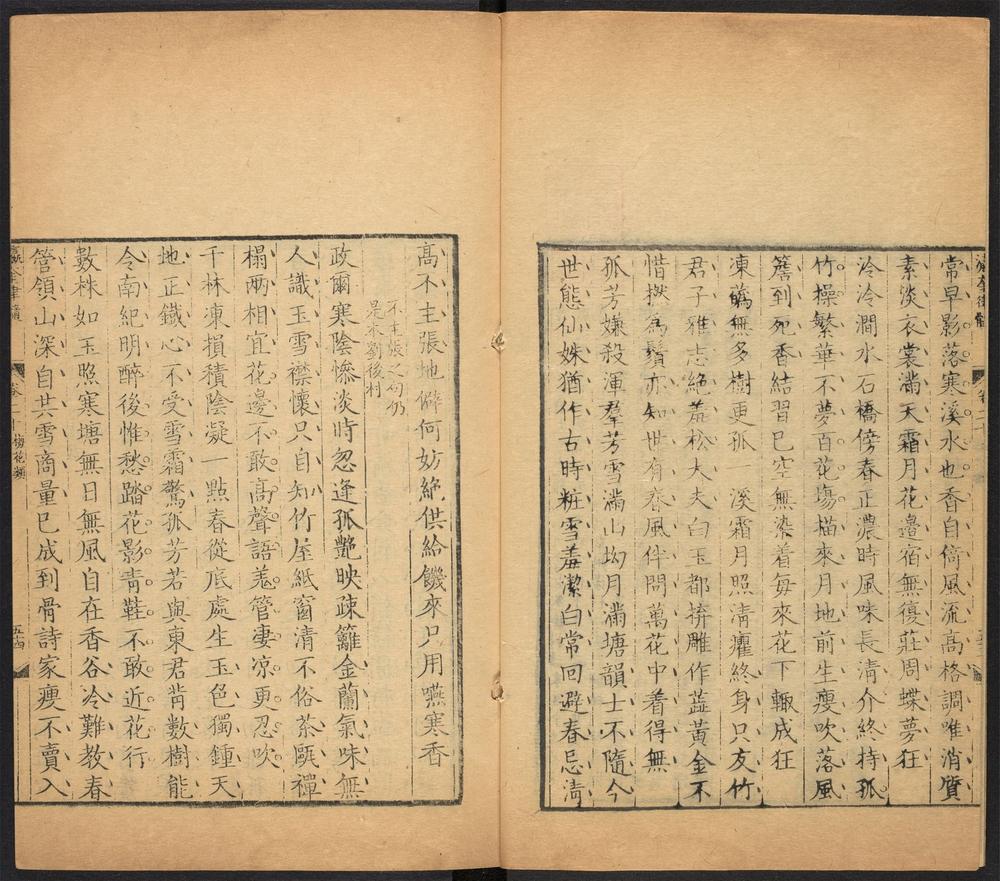 常早影落寒溪水也香自倚風流高格調唯消質
素淡衣裳滿天霜月花邉宿無復莊周蝶夢狂
泠泠澗水石橋傍春正濃時風味長清介終持孤
竹操繁華不夢百花塲描來月地前生瘦吹落風
簷到死香結習已空無染着每來花下輙成狂
凍蘂無多樹更孤　溪霜月照清癯終身只友竹
君子雅志絶羞松大夫白玉都拚雕作蘂黃金不
惜撚爲鬚亦知世有春風伴問萬花中着得無
孤芳嫌殺渾羣芳雪滿山坳月滿塘韻士不隨今
世態仙姝猶作古時粧雪羞潔白常回避春忌清
高不主張地僻何妨絶供給饑來只用嚥寒香
不主張之句仍
是本劉後村
政爾寒陰慘淡時忽逢孤艷映疎籬金蘭氣味無
人識玉雪襟懷只自知竹屋紙窗清不俗茶甌禪
榻兩相宜花邊不敢高聲語羌管凄凉更忍吹
千林凍損積陰凝一點春從底處生玉色獨鍾天
地正鐵心不受雪霜驚孤芳若與東君背數樹能
令南紀明醉後惟愁踏花影青鞋不敢近花行
數株如玉照寒塘無日無風自在香谷冷難教春
管領山深自共雪商量已成到骨詩家瘦不賣入
瀛奎律髓 卷二十 梅花類 五十四